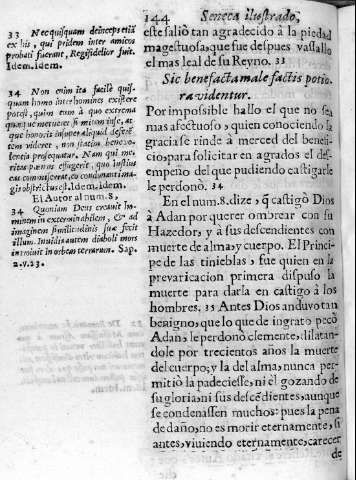 144 Seneca ilustrado,
33 Nec quisquam deinceps etiā
ex his, qui pridem inter amicos
probati fuerant, Regi fidelior fuit.
Idem. idem.
34 Non enim ita facilè quis-
quam homo inter homines existere
potest, quin eum à quo extrema
quæque metueret si mitem
que honoris insuper aliquid
tem videret, non statim
lentia prosequatur. Nam qui me-
ritas pænas effugerit, quo
eius commiseratæ, eo condonantima-
gis obstrictus est. Idem. idem.
El Autor al num. 8.
34 Quoniam Deus creauit ho-
minem in exterminabilem, & ad
imaginem similitudinis suæ fecit
illum. Inuidia autem diaboli mors
introiuit in orbem terrarum. Sap.
2. v. 23.
este saliò tan agradecido à la piedad
magestuosa, que fue despues vassallo
el mas leal de su Reyno. 33
Sic benefacta male factis potio-
ra videntur.
Por impossible hallo el que no sea
mas afectuoso, quien conociendo la
gracia se rinde à merced del benefi-
cio, para solicitar en agrados el des-
empeño del que pudiendo castigarle
le perdonò. 34
En el num. 8. dize, q̃ castigò Dios
à Adan por querer ombrear con su
Hazedor, y à sus descendientes con
muerte de alma, y cuerpo. El Princi-
pe de las tinieblas, fue quien en la
prevaricacion primera dispuso la
muerte para darla en castigo à los
hombres. 35 Antes Dios anduvo tan
benigno, que lo que de ingrato pecò
Adan, le perdonò clemente, dilatan-
dole por trecientos años la muerte
del cuerpo; y la del alma, nunca per-
mitiò la padeciesse, ni èl gozando de
su gloria, ni sus descẽdientes, aunque
se condenassen muchos: pues la pena
de daño, no es morir eternamente, si
antes, viviendo eternamente, carecer
de